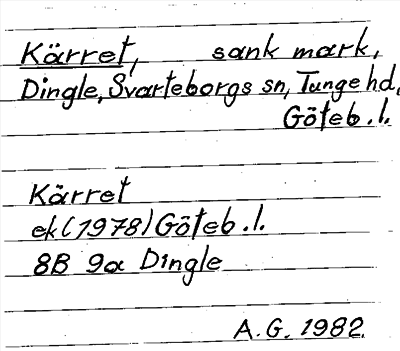 Kärret, sank mark,
Dingle, Svarteborgs sn, Tunge hd,
Göteb.l.
Kärret
ek (1978) Göteb.l.
8B 9a Dingle
A.G. 1982